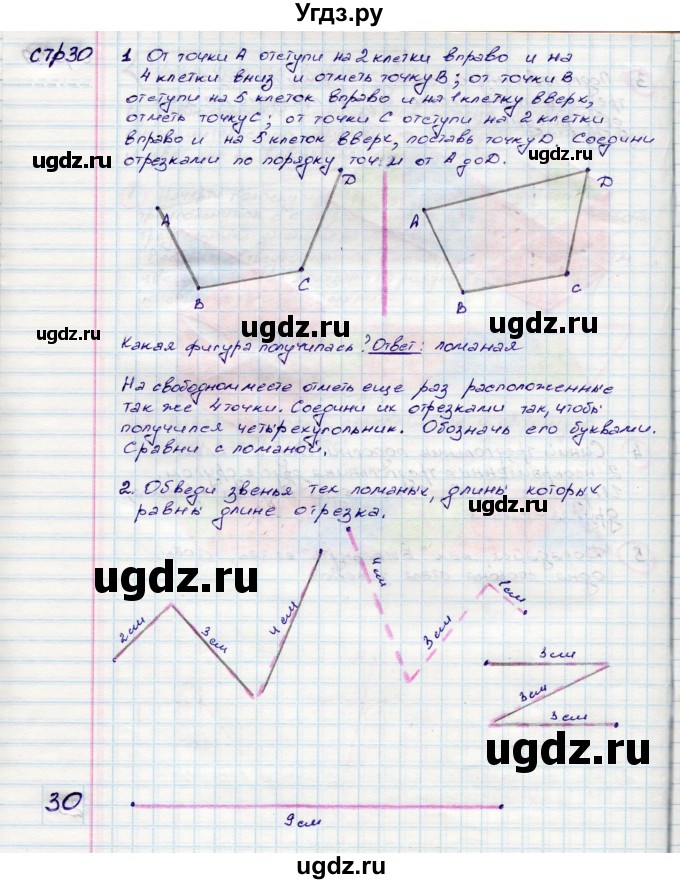 Угдз.ру
стр30
1 От точки А отступи на 2 клетки вправо и на
4 клетки вниз и отметь точку В; от точки В
отступи на 5 клеток вправо и на 1 клетку вверх,
отметь точку С; от точки С отступи на 2 клетки
вправо и на 5 клеток вверх, поставь точку D. Соедини
отрезками по порядку точки от А до D.
ugdz.ru
ugdz.ru
D
A
B
C
D
A
B
C
ugdz.ru
ugdz.ru
ugdz.ru
Какая фигура получилась? Ответ: ломаная
На свободном месте отметь еще раз расположенные
так же 4 точки. Соедини их отрезками так, чтобы
получился четырехугольник. Обозначь его буквами.
Сравни с ломаной.
2. Обведи звенья тех ломаных, длины которых
равны длине отрезка.
ugdz.ru
ugdz.ru
2 см
3 см
4 см
4 см
3 см
1 см
3 см
3 см
3 см
ugdz.ru
30
9 см
ugdz.ru
ugdz.ru